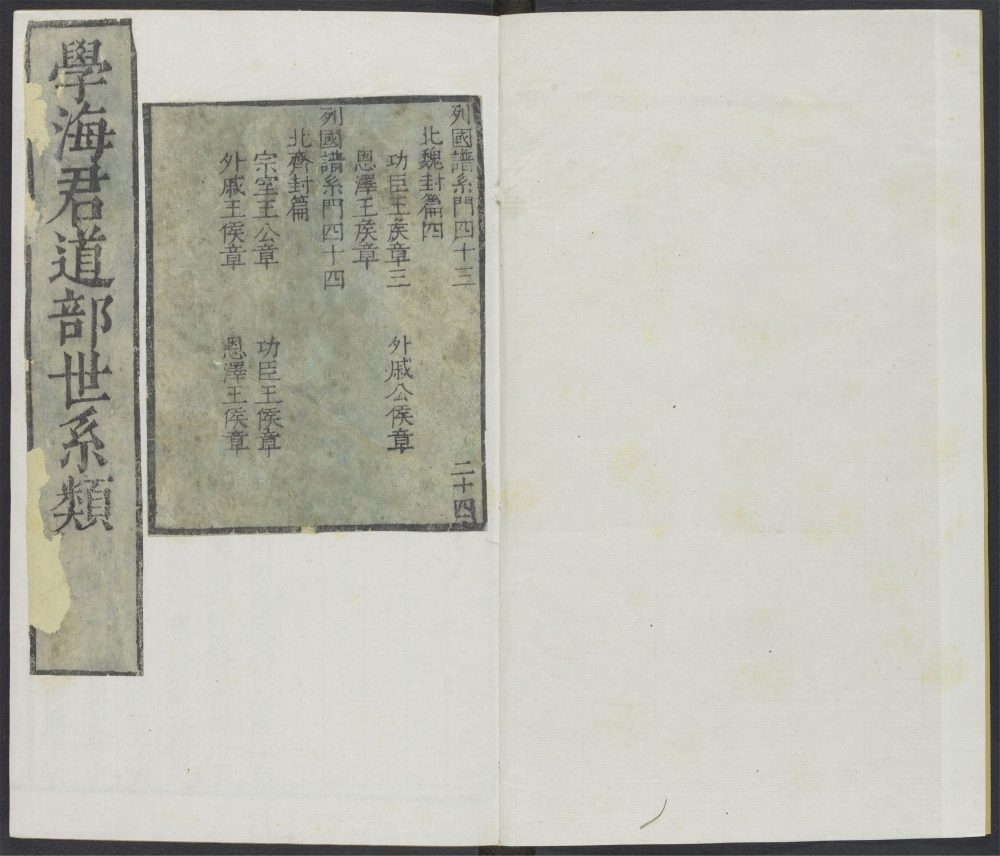 列國譜系門四十三
北魏封篇四
功臣王侯章三
外戚公侯章
恩澤王侯章
列國譜系門四十四
北齊封篇
宗室王公章
功臣王侯章
外戚王侯章
恩澤王侯章
二十四
學海君道部世系類